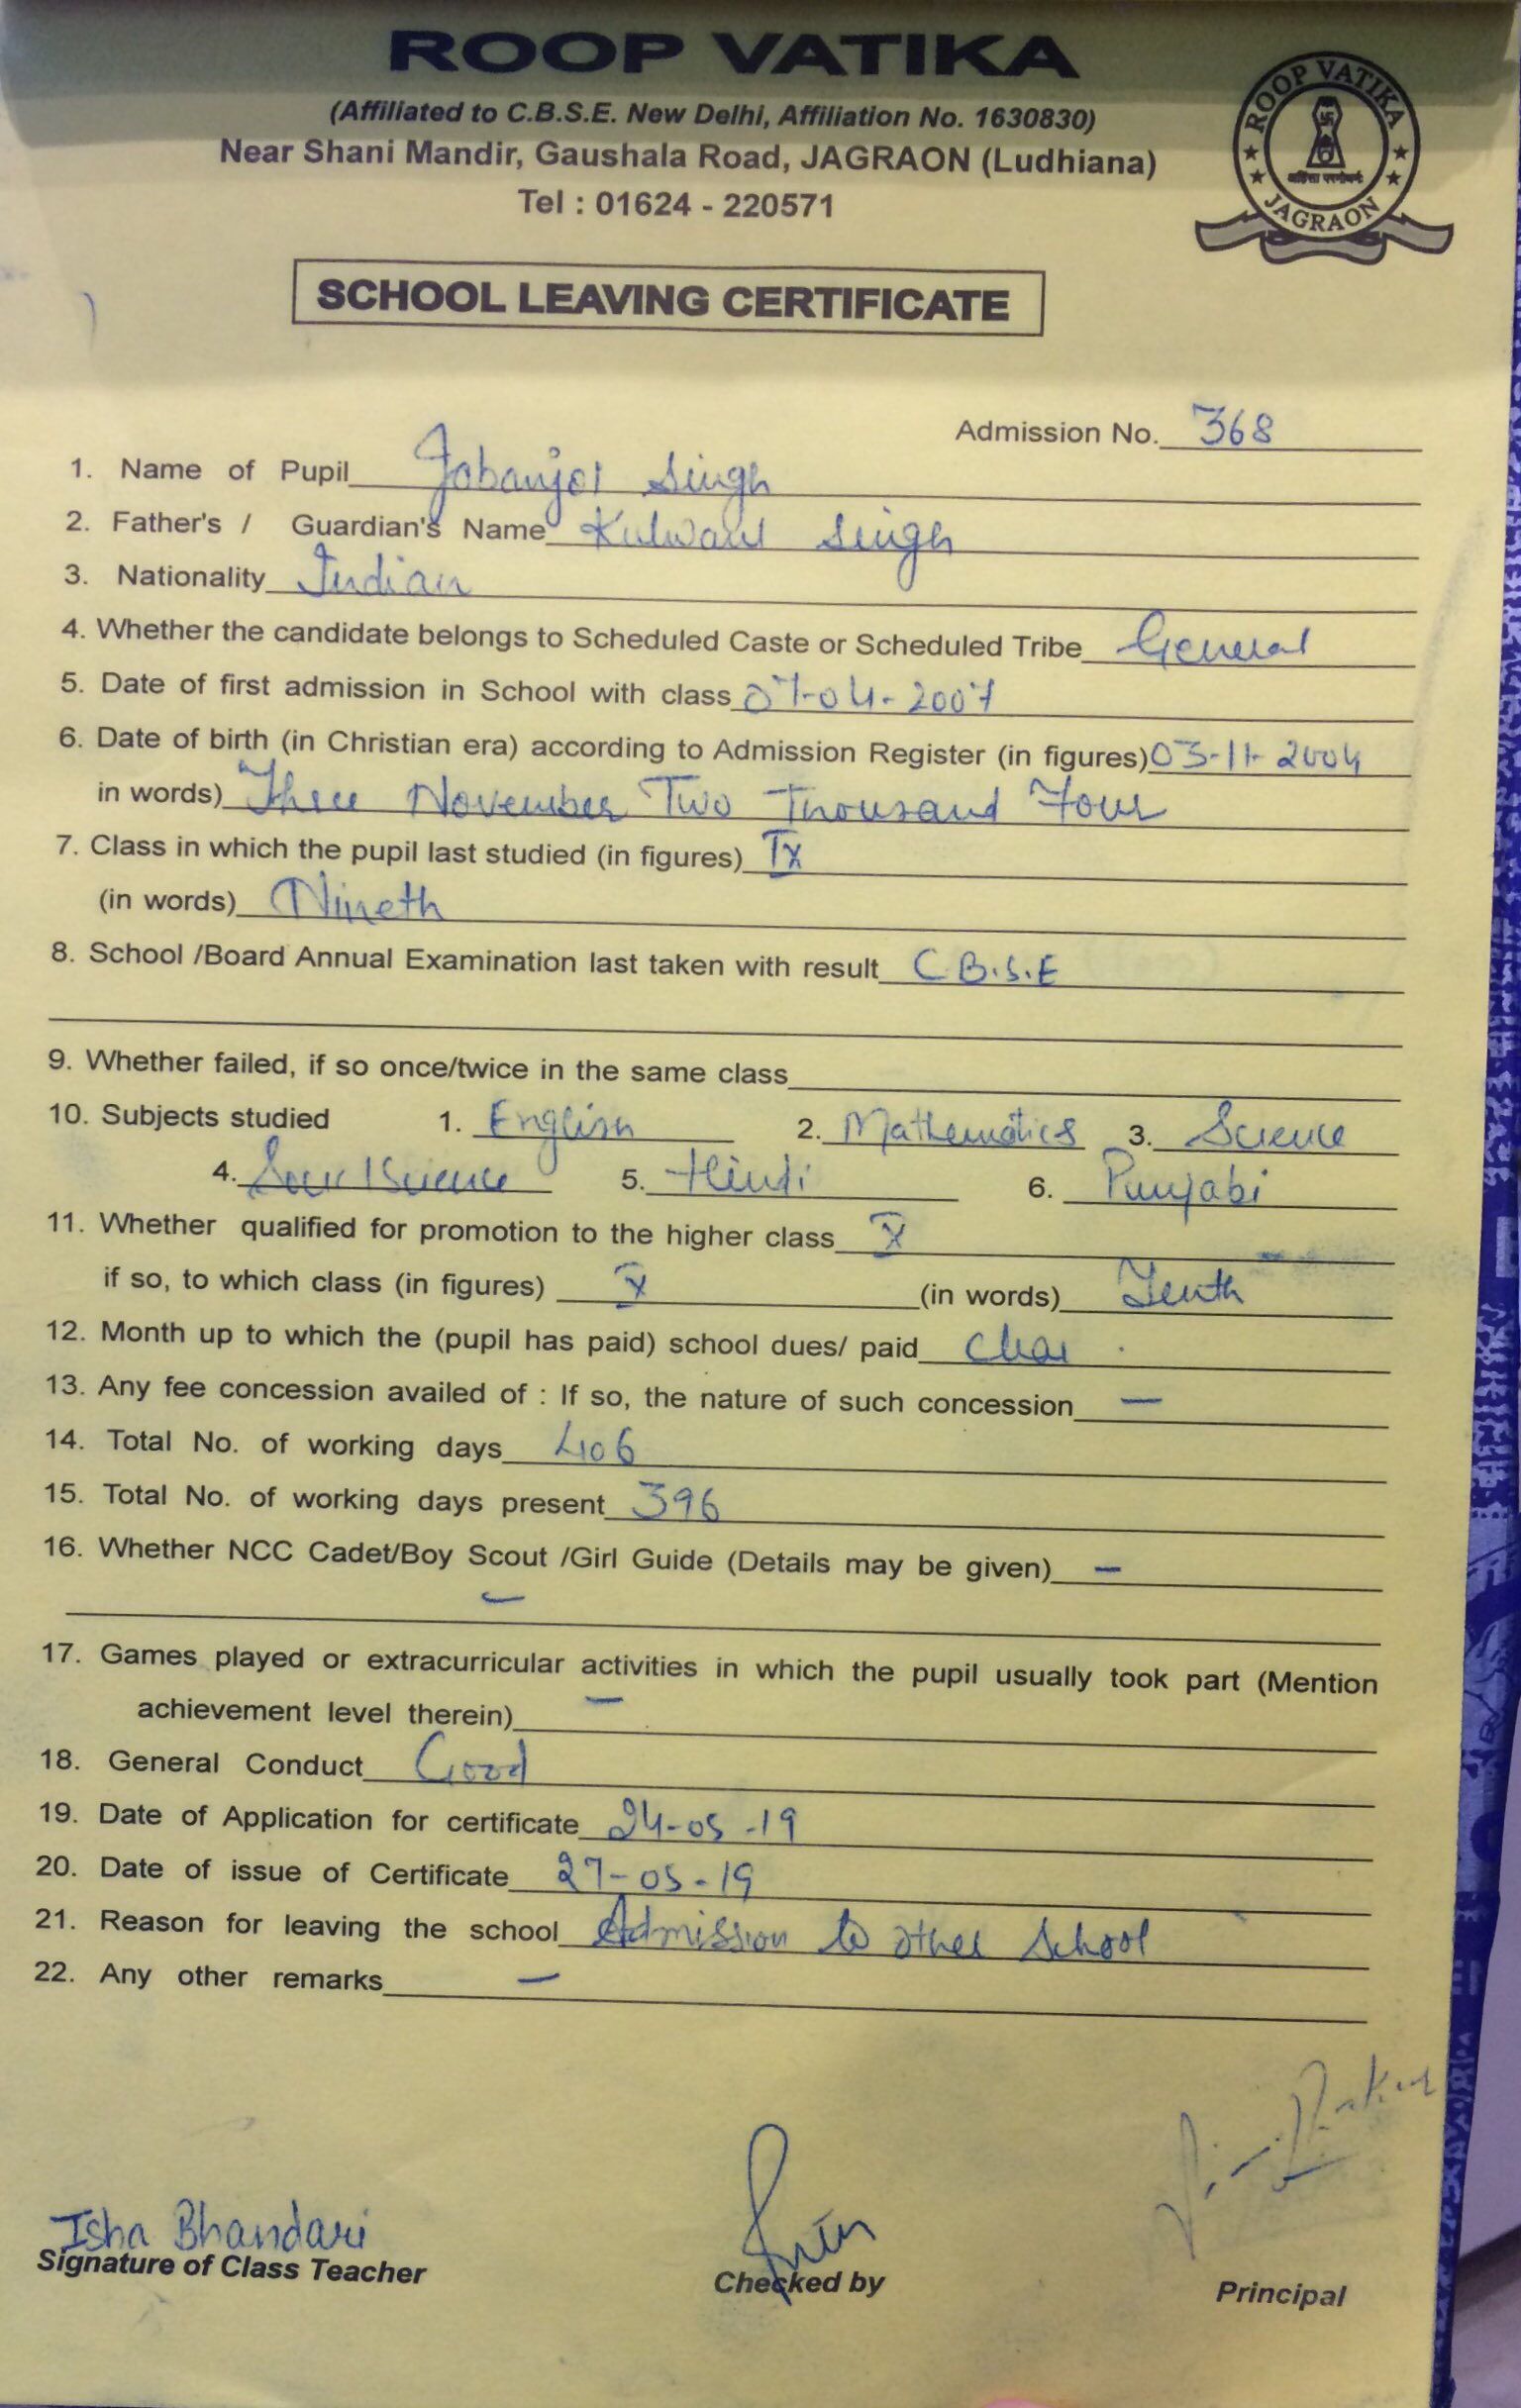 ROOP VATIKA
(Affiliated to C.B.S.E. New Delhi, Affiliation No. 1630830)
Near Shani Mandir, Gaushala Road, JAGRAON (Ludhiana)
Tel : 01624 - 220571
ROOP VATIKA
अहिंसा परमोधर्मः
JAGRAON
SCHOOL LEAVING CERTIFICATE
Admission No. 368
1. Name of Pupil Singh
2. Father's / Guardian's Name Kulwant Singh
3. Nationality Indian
4. Whether the candidate belongs to Scheduled Caste or Scheduled Tribe General
5. Date of first admission in School with class 07-04-2007
6. Date of birth (in Christian era) according to Admission Register (in figures) 03-11-2004
in words) Three November Two Thousand Four
7. Class in which the pupil last studied (in figures) IX
(in words) Nineth
8. School /Board Annual Examination last taken with result C.B.S.E
9. Whether failed, if so once/twice in the same class
10. Subjects studied 1. English 2. Mathematics 3. Science
4. Science 5. Hindi 6. Punjabi
11. Whether qualified for promotion to the higher class X
if so, to which class (in figures) X (in words) Tenth
12. Month up to which the (pupil has paid) school dues/ paid
13. Any fee concession availed of : If so, the nature of such concession —
14. Total No. of working days 406
15. Total No. of working days present 396
16. Whether NCC Cadet/Boy Scout /Girl Guide (Details may be given) —
—
17. Games played or extracurricular activities in which the pupil usually took part (Mention
achievement level therein) —
18. General Conduct Good
19. Date of Application for certificate 24-05-19
20. Date of issue of Certificate 27-05-19
21. Reason for leaving the school Admission to other School
22. Any other remarks —
Isha Bhandari
Signature of Class Teacher Checked by Principal